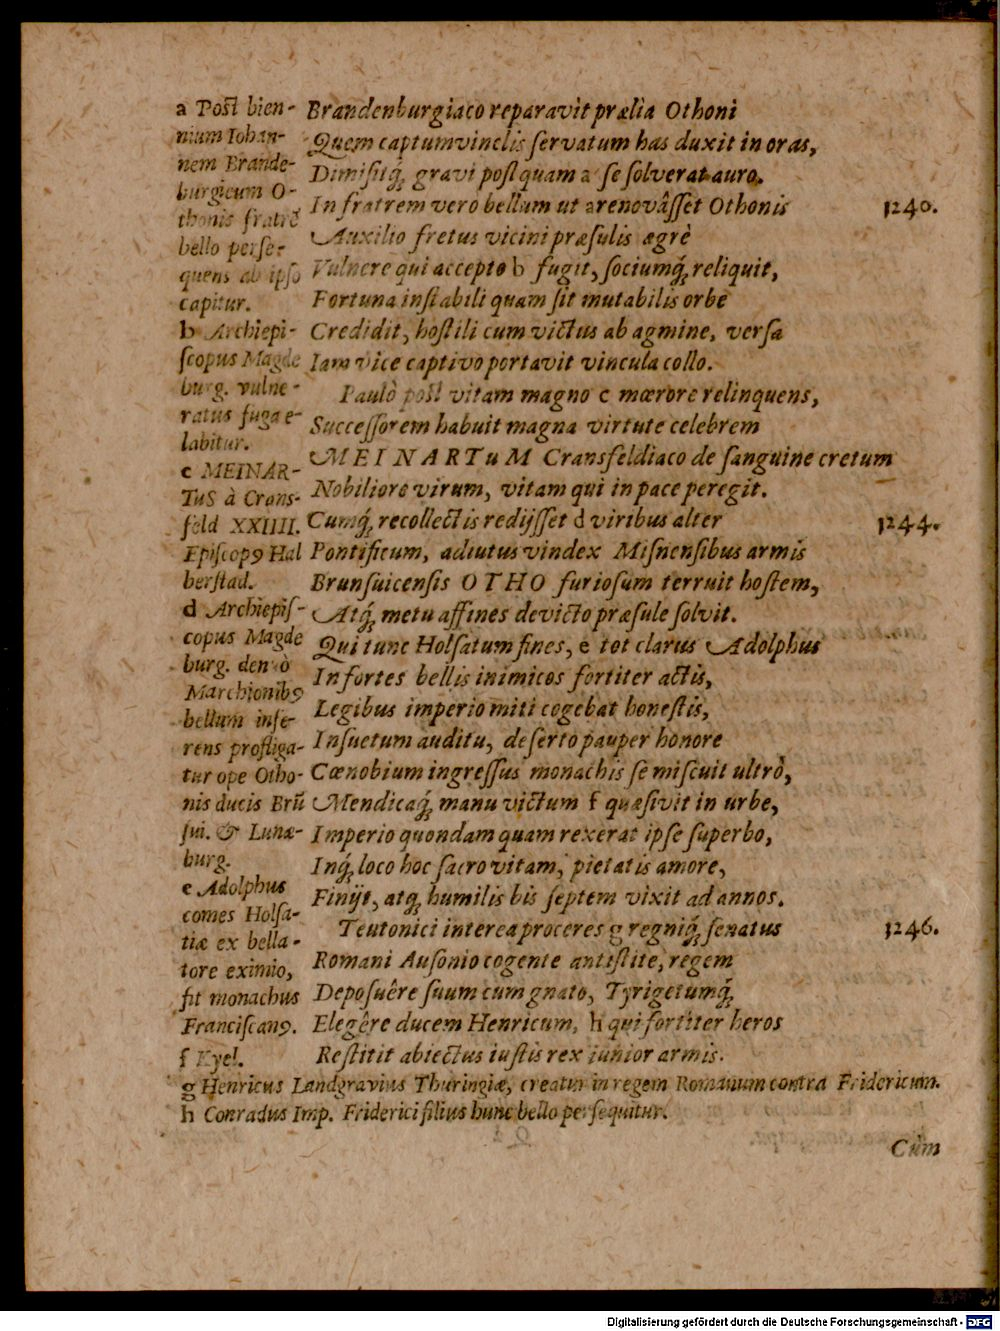 Brandenburgiaco reparavit prælia Othoni
Quem captum vinclis servatum has duxit in oras,
Dimisitq́ꝫ gravi postquam a se solverat auro.
In fratrem vero bellum ut a renovâsset Othonis
1240.
Auxilio fretus vicini præsulis ægrè
Vulnere qui accepto b fugit, sociumq́ꝫ reliquit,
Fortuna instabili quam sit mutabilis orbe
Credidit, hostili cum victus ab agmine, versa
Iam vice captivo portavit vincula collo.
Paulò post vitam magno c mœrore relinquens,
Successorem habuit magna virtute celebrem
MEINARTuM Cransfeldiaco de sanguine cretum
Nobiliore virum, vitam qui in pace peregit.
Cumq́ꝫ recollectis redijsset d viribus alter
1244.
Pontificum, adiutus vindex Misnensibus armis
Brunsuicensis OTHO furiosum terruit hostem,
Atq́ꝫ metu affines devicto præsule solvit.
Qui tunc Holsatum fines, e tot clarus Adolphus
In fortes bellis inimicos fortiter actis,
Legibus imperio miti cogebat honestis,
Insuetum auditu, deserto pauper honore
Cœnobium ingressus monachis se miscuit ultrò,
Mendicaq́ꝫ manu victum f quæsivit in urbe,
Imperio quondam quam rexerat ipse superbo,
Inq́ꝫ loco hoc sacro vitam, pietatis amore,
Finijt, atqꝫ humilis bis septem vixit ad annos.
Teutonici interea proceres g regniq́ꝫ senatus
1246.
Romani Ausonio cogente antistite, regem
Deposuêre suum cum gnato, Tyrigetumq́ꝫ
Elegêre ducem Henricum, h qui fortiter heros
Restitit abiectus iustis rex iunior armis.
a Post bien-
nium Iohan-
nem Brande-
burgicum O-
thonis fratrẽ
bello perse-
quens ab ipso
capitur.
b Archiepi-
scopus Magde
burg. vulne-
ratus fuga e-
labitur.
c MEINAR-
TuS à Crans-
feld XXIIII.
Episcopꝰ Hal
berstad.
d Archiepis-
copus Magde
burg. denuò
Marchionibꝰ
bellum infe-
rens profliga-
tur ope Otho-
nis ducis Brũ
sui. & Lunæ-
burg.
e Adolphus
comes Holsa-
tiæ ex bella-
tore eximio,
fit monachus
Franciscanꝰ.
f Kyel.
g Henricus Landgravius Thuringiæ, creatur in regem Romanum contra Fridericum.
h Conradus Imp. Friderici filius hunc bello persequitur.
Cùm
Digitalisierung gefördert durch die Deutsche Forschungsgemeinschaft - DFG